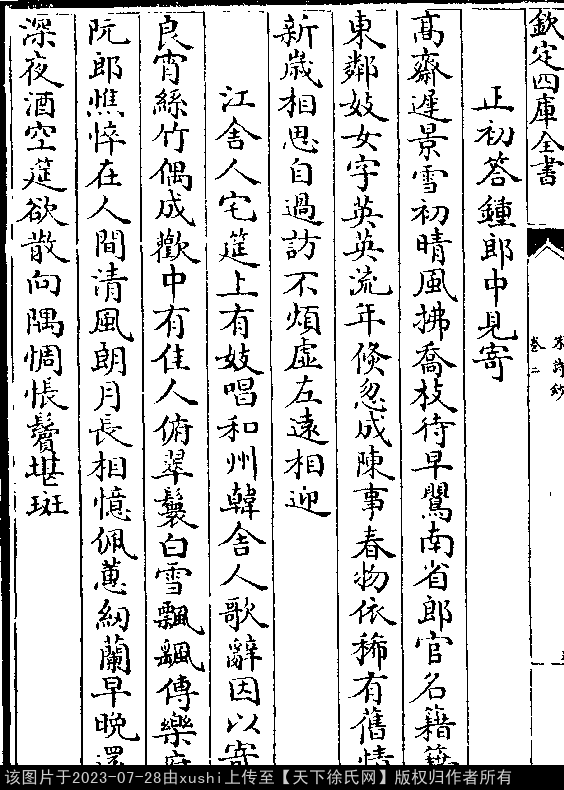 欽定四庫全書
宋詩鈔
卷二
正初答鍾郎中見寄
髙齋遲景雪初晴風拂喬枝待早鸎南省郎官名籍籍
東鄰妓女字英英流年倐忽成陳事春物依稀有舊情
新嵗相思自過訪不煩虚左逺相迎
江舍人宅筵上有妓唱和州韓舍人歌辭因以寄
良宵絲竹偶成歡中有佳人俯翠鬟白雪飄飖傳樂府
阮郎憔悴在人間清風朗月長相憶佩蕙紉蘭早晚還
深夜酒空筵欲散向隅惆悵鬢堪斑
该图片于2023-07-28由xushi上传至【天下徐氏网】版权归作者所有